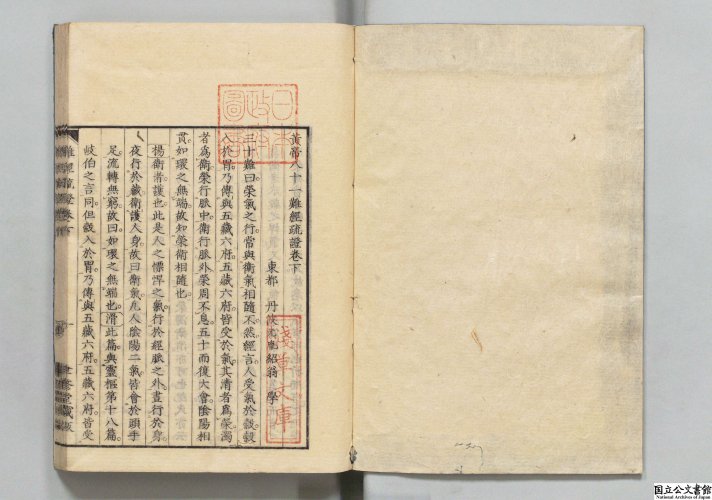 黃帝八十一難經疏證卷下
東都 丹波元胤紹翁 學
三十難曰榮氣之行常與衞氣相隨不然經言人受氣於穀穀
入於胃乃傳與五藏六府五藏六府皆受於氣其清者爲榮濁
者爲衞榮行脈中衞行脈外榮周不息五十而復大會陰陽相
貫如環之無端故知榮衞相隨也
楊衞者護也此是人之慓悍之氣行於經脈之外晝行於身
夜行於藏衞護人身故曰衞氣凡人陰陽二氣皆會於頭手
足流轉無窮故曰如環之無端也滑此篇與靈樞第十八篇
岐伯之言同但穀入於胃乃傳與五藏六府五藏六府皆受
難經疏證卷下
一
日本
政府
圖書
淺草文庫
国立公文書館
National Archives of Japan